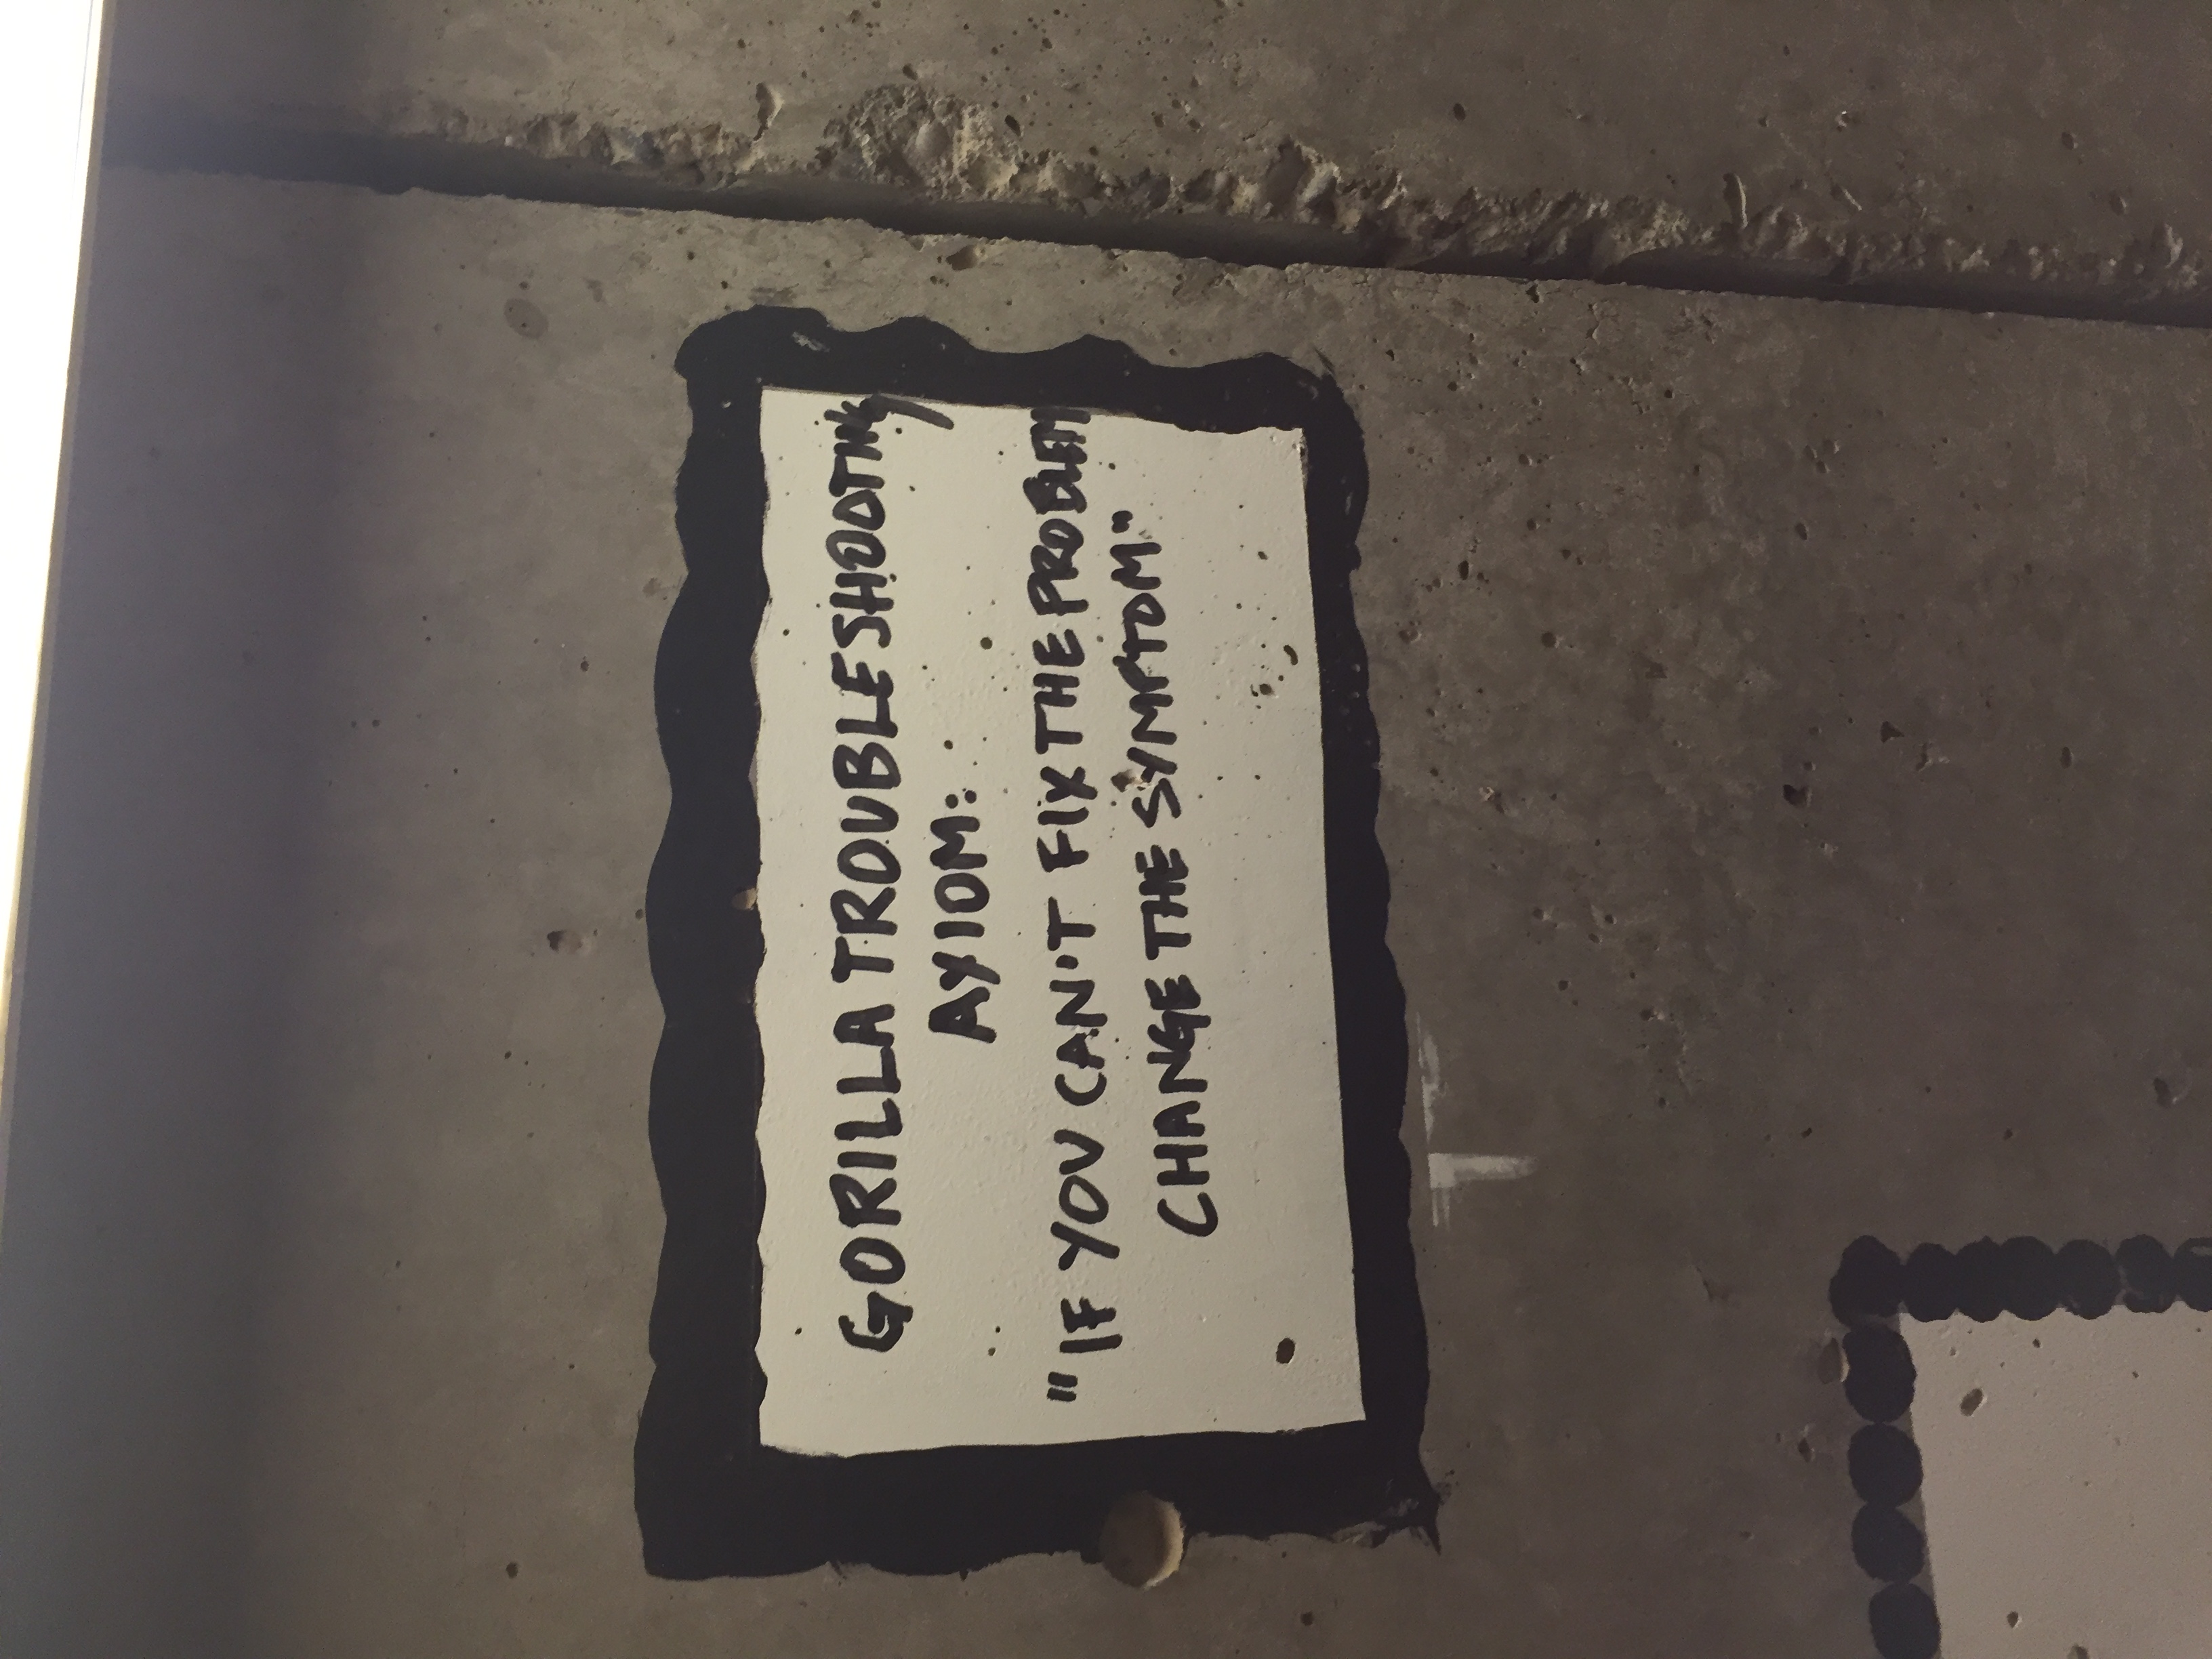 GORILLA TROUBLESHOOTING
AXIOM:
"IF YOU CAN'T FIX THE PROBLEM
CHANGE THE SYMPTOM"